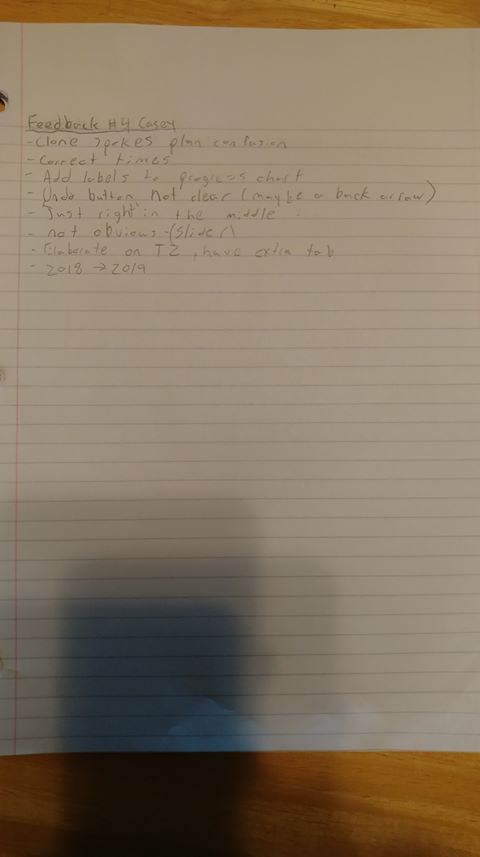 Feedback #4 Casey
- Clone spokes plan confusion
- Correct times
- Add labels to progress chart
- Undo button not clear (maybe a back arrow)
- Just right in the middle
- not obvious (slider)
- Elaborate on TZ, have extra tab
- 2018 → 2019